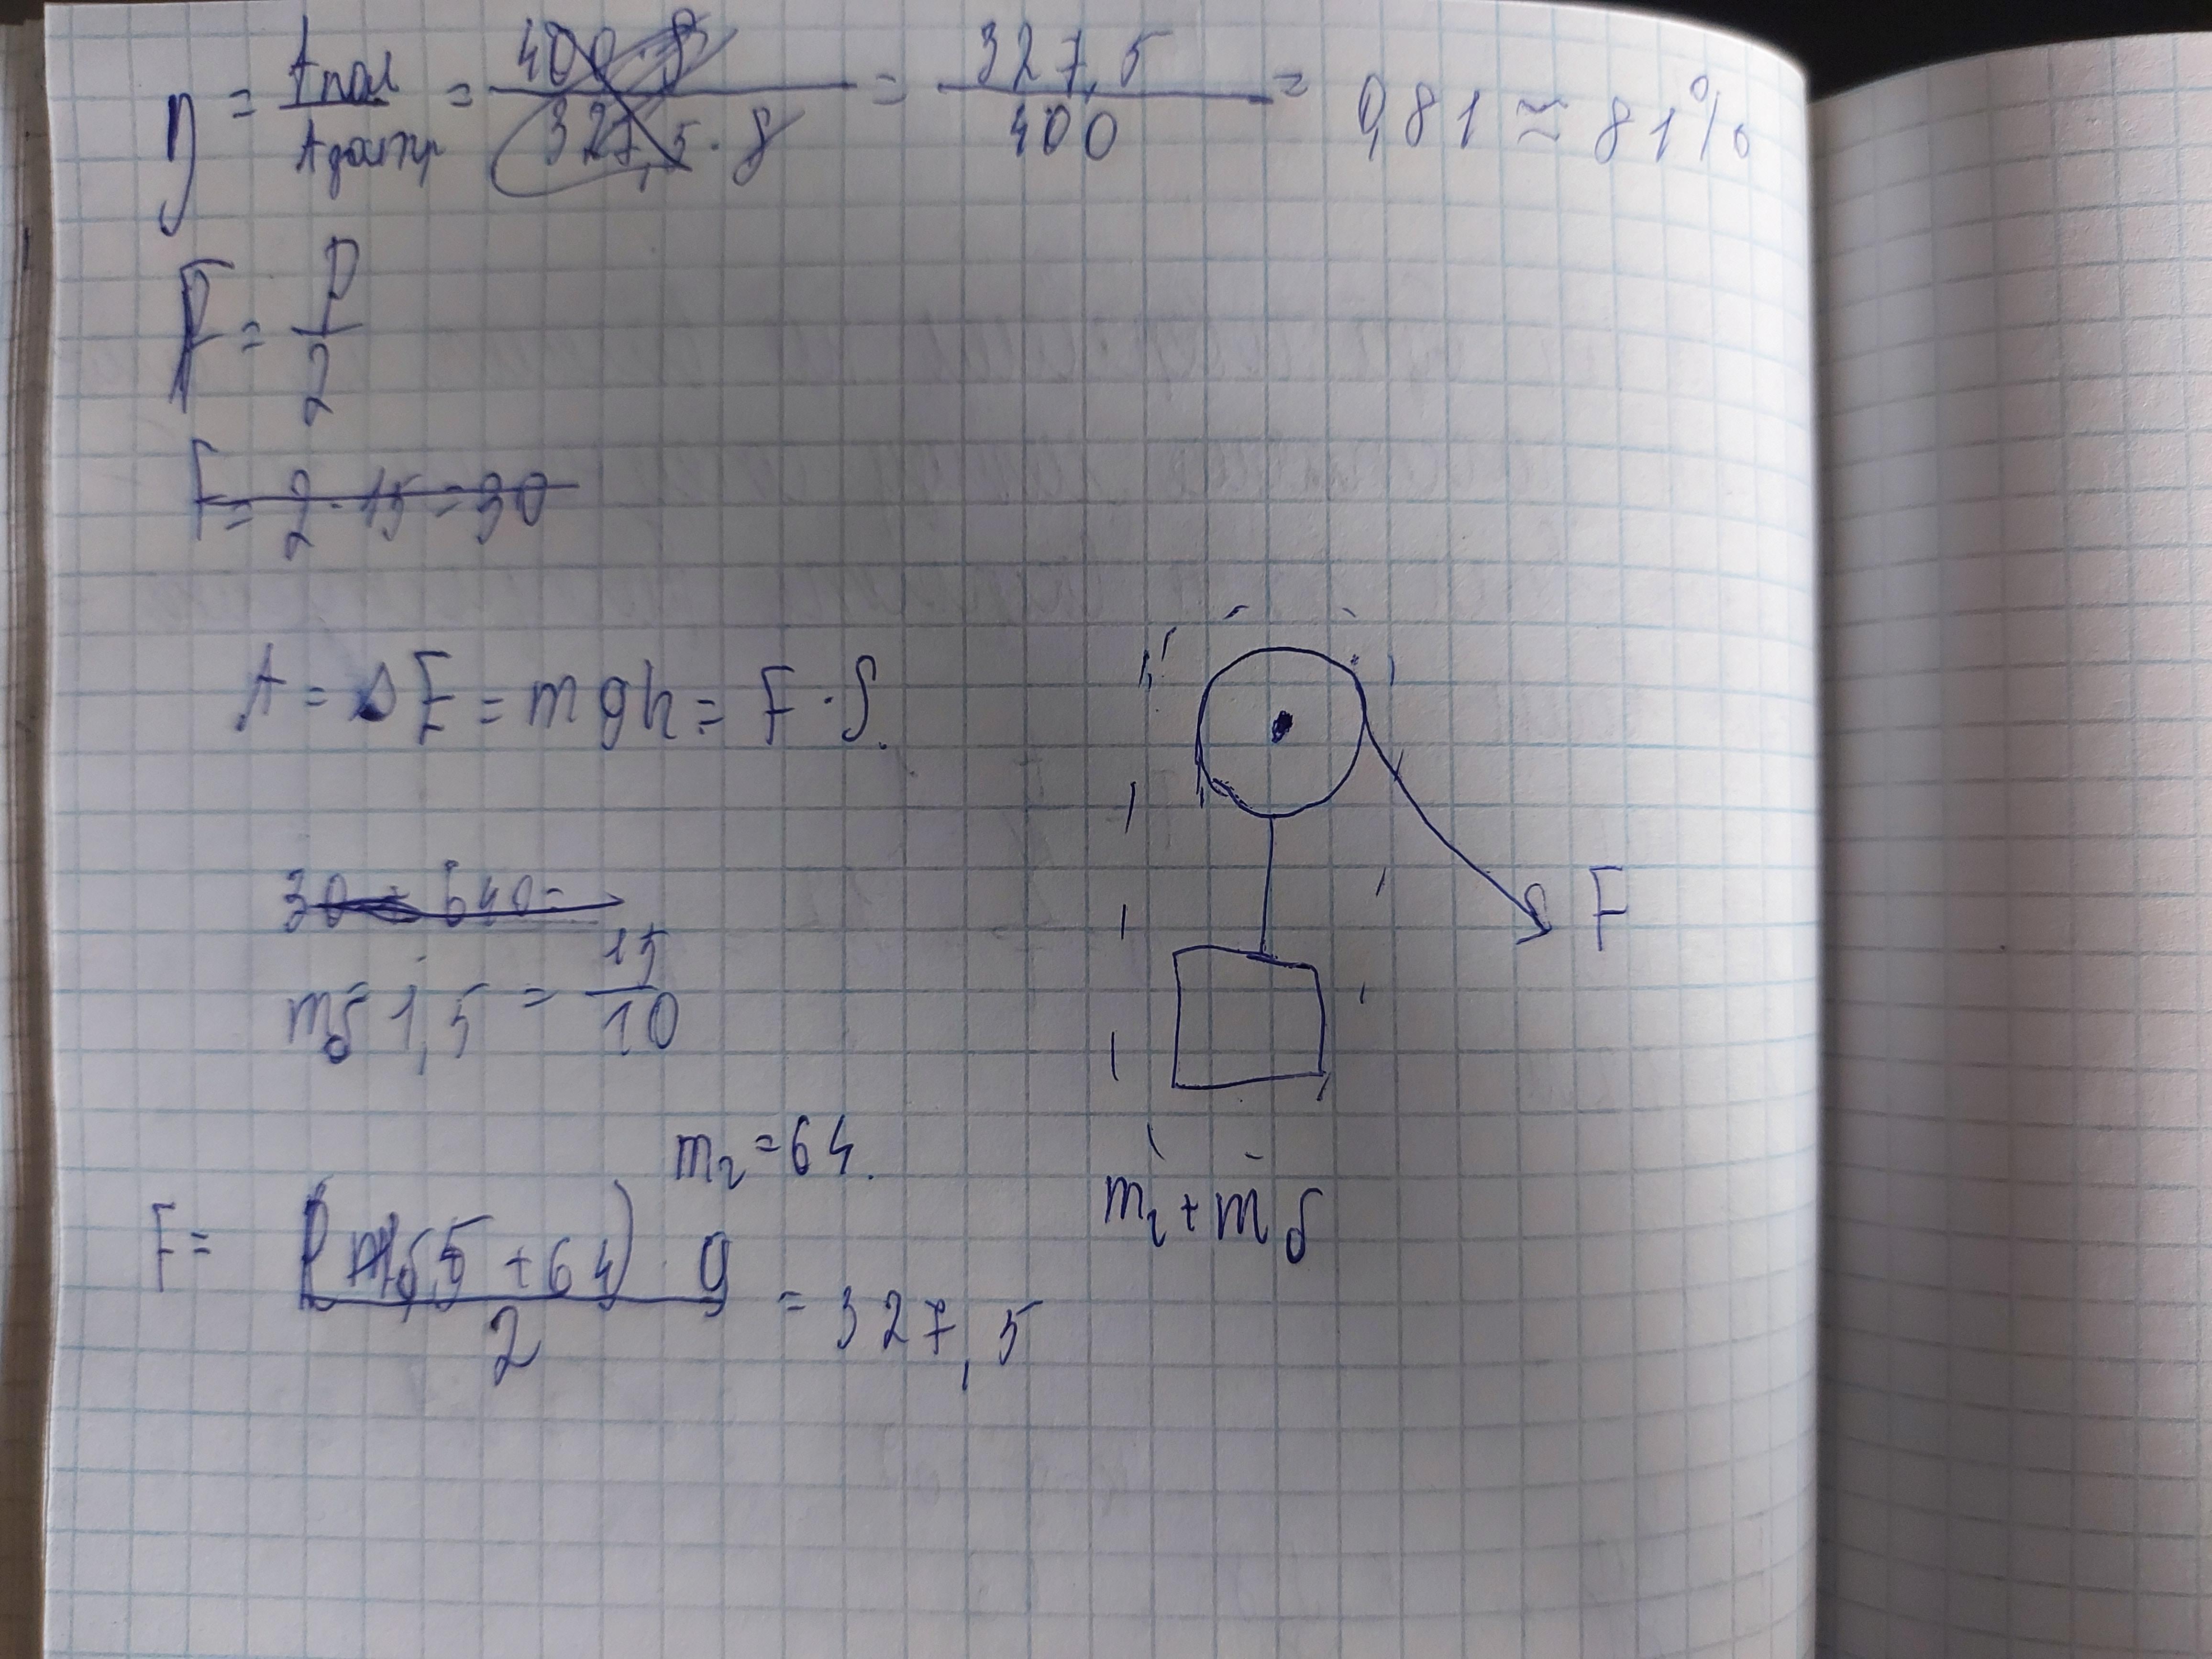 η = Aпол / Aзатр = 400 · 8 / 327,5 · 8 = 327,5 / 400 = 0,81 ≈ 81%
F = P / 2
F = 2 · 15 = 30
A = ΔE = mgh = F · S.
30 640 =
mб = 1,5 = 15 / 10
m2 = 64.
F = (1,5 + 64) · g / 2 = 327,5
F
m2 + mб